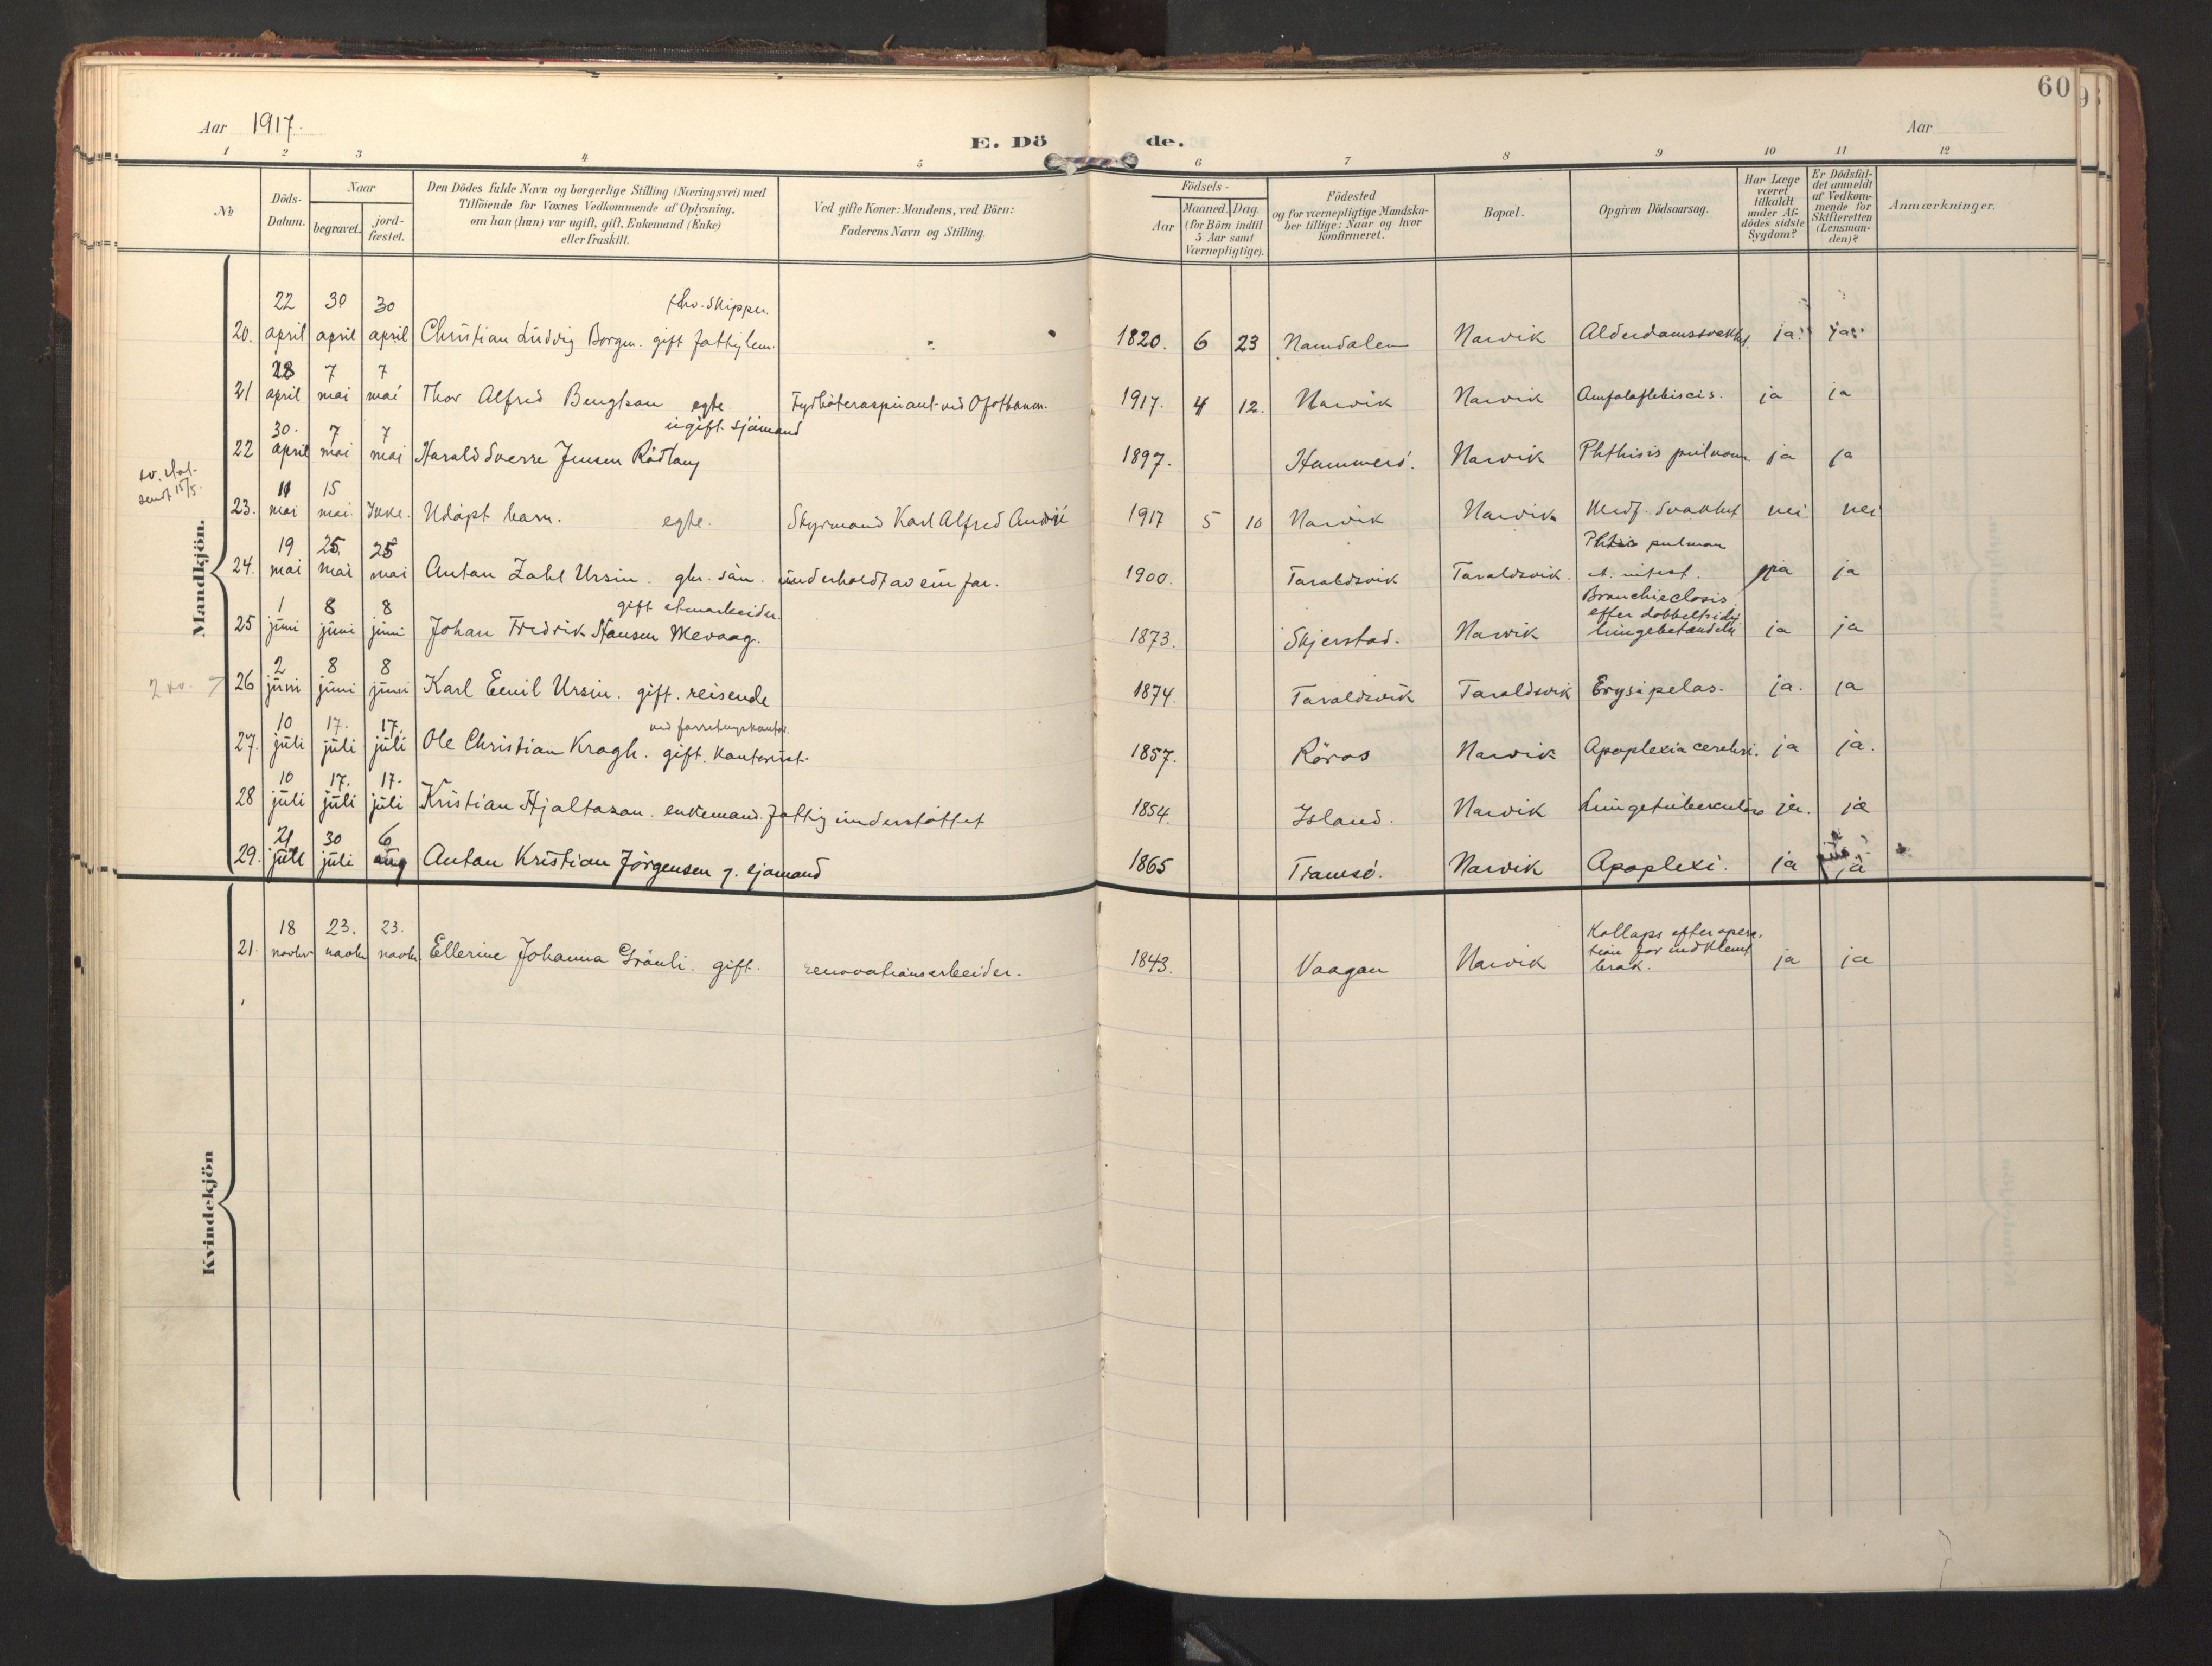 60
Aar 1917.
E. Dö de.
Aar
1 2 3 4 5 6 7 8 9 10 11 12
№
Döds-
Datum.
Naar
begravet.
jord-
fæstet.
Den Dödes fulde Navn og borgerlige Stilling (Næringsvei) med
Tilföiende for Voxnes Vedkommende af Oplysning,
om han (hun) var ugift, gift, Enkemand (Enke)
eller fraskilt.
Ved gifte Koner: Mandens, ved Börn:
Faderens Navn og Stilling.
Födsels-
Aar
Maaned. Dag.
(for Börn indtil
5 Aar samt
Værnepligtige).
Födested
og for værnepligtige Mandska-
ber tillige: Naar og hvor
konfirmeret.
Bopæl.
Opgiven Dödsaarsag.
Har Læge
været
tilkaldt
under Af-
dödes sidste
Sygdom?
Er Dödsfal-
det anmeldt
af Vedkom-
mende for
Skifteretten
(Lensman-
den)?
Anmærkninger.
Mandkjön.
22 30 30 fhv. Skipper.
20. april april april Christian Ludvig Borgen. gift fattiglem. " 1820. 6 23 Namdalen Narvik Alderdomssvakhet. ja ja
28 7 7
21 april mai mai Thor Alfred Bengtson egte. Fyrbøteraspirant ved Ofotbanen. 1917. 4 12. Narvik Narvik ja ja
30. 7 7 ugift sjömand
22 april mai mai Harald Sverre Jensen Rödtang 1897. Hammerö. Narvik Phthisis pulmon. ja ja
sendt 15/5.
11 15
23. mai mai. Ikke. Udöpt barn. egte. Styrmand Karl Alfred 1917 5 10 Narvik Narvik Medf. svakhet nei nei
19 25. 25 Phtisis pulmon
24. mai mai mai Anton Zahl Ursin. ghr. sön. underholdt av sin far. 1900. Taraldsvik Taraldsvik. et. intest. ja ja
1 8 8 gift
25 juni juni juni Johan Fredrik Hansen Mevaag. 1873. Skjerstad. Narvik efter dobbeltsidig lungebetændelse ja ja
2 sv.
2 8 8
26 juni juni juni Karl Eemil Ursin. gift. reisende 1874. Taraldsvik Taraldsvik Erysipelas. ja. ja
10 17. 17. ved forretningskontor.
27. juli juli juli Ole Christian Kragh. gift. Kontorist. 1857. Röros Narvik Apoplexia cerebri. ja ja.
10 17. 17.
28 juli juli juli Kristian Hjaltason. enkemand. Fattig understöttet 1854. Island. Narvik Lungetuberculose ja. ja
21 30 6
29. juli juli aug Anton Kristian Jörgensen g. sjömand 1865 Tromsö. Narvik Apoplexi. ja ja
Kvindekjön
18 23. 23. Kollaps efter opera-
21. novbr novbr novbr Ellerine Johanna Grönli. gift. renovationsarbeider. 1843. Vaagan Narvik tion for indklemt brok. ja ja